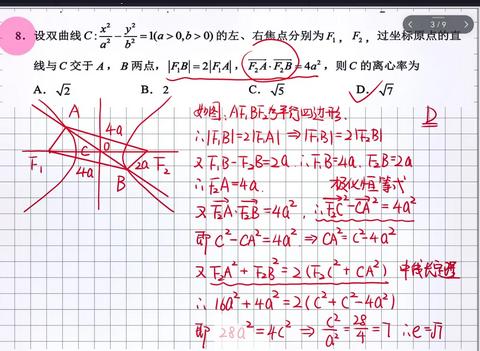 3 / 9
8. 设双曲线 C: x²/a² - y²/b² = 1(a>0,b>0) 的左、右焦点分别为 F₁，F₂，过坐标原点的直
线与 C 交于 A，B 两点，|F₁B|=2|F₁A|，F₂A·F₂B=4a²，则 C 的离心率为
A. √2 B. 2 C. √5 D. √7
如图，AF₁BF₂为平行四边形. D
∴|F₁B|=2|F₁A| ⇒|F₁B|=2|F₂B|
又F₁B-F₂B=2a. ∴F₁B=4a. F₂B=2a
∴F₂A=4a. 极化恒等式
又F₂A·F₂B=4a², ∴F₂C²-CA²=4a²
即 C²-CA²=4a² ⇒ CA²=C²-4a²
又 F₂A²+F₂B²=2(F₂C²+CA²) 中线长定理
∴16a²+4a²=2(C²+C²-4a²)
即 28a²=4C² ⇒ C²/a²=28/4=7 ∴e=√7
A
4a
F₁ C O F₂
4a 2a
B